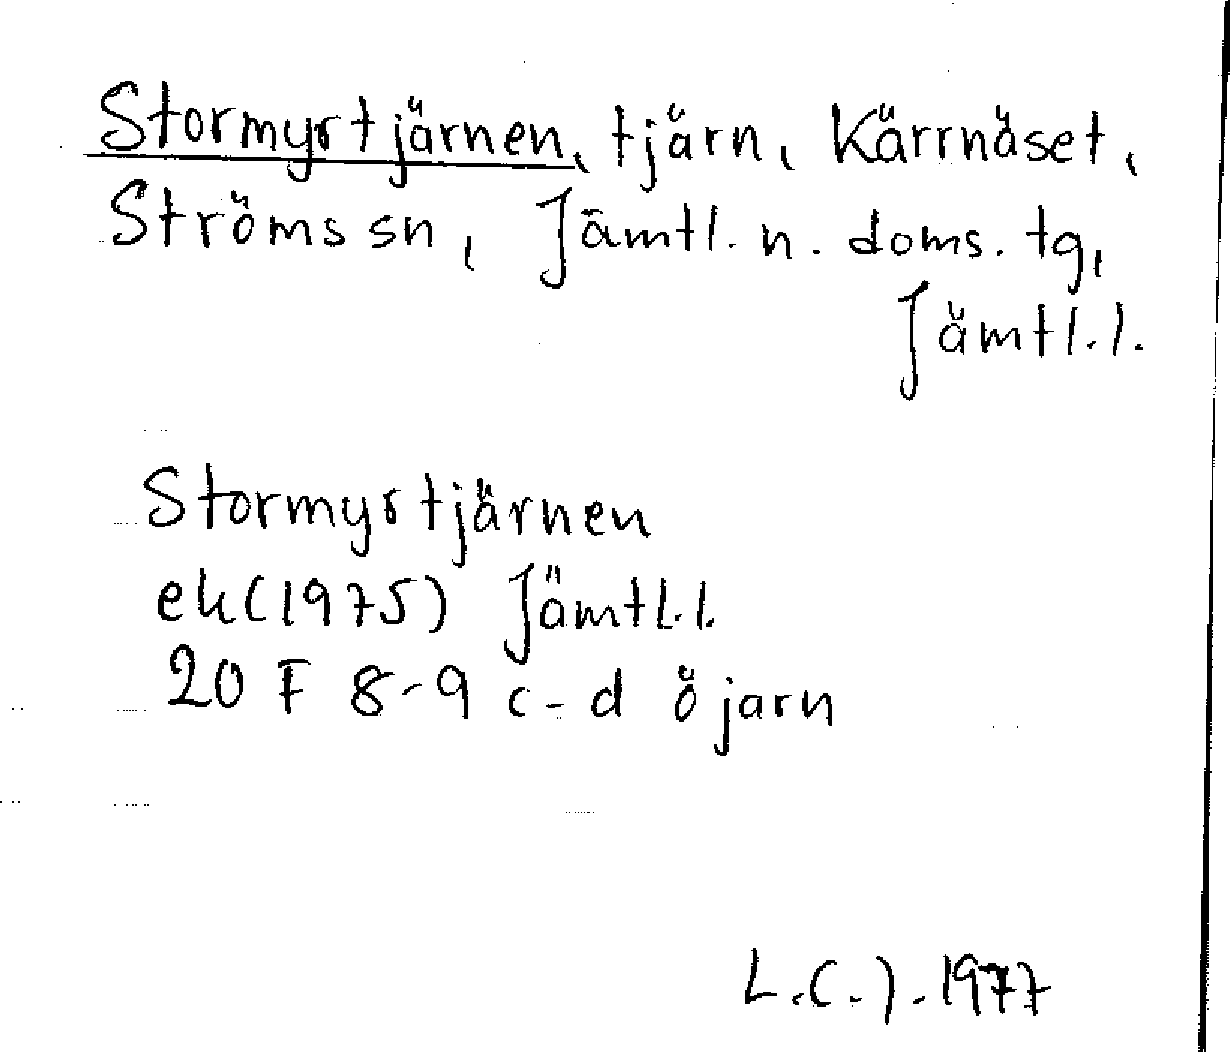 Stormyrtjärnen, tjärn, Kärrnäset,
Ströms sn, Jämtl. n. doms. tg,
Jämtl.l.
Stormyrtjärnen
ek(1975) Jämtl.l.
20 F 8-9 c-d öjarn
L.C.J. 1977